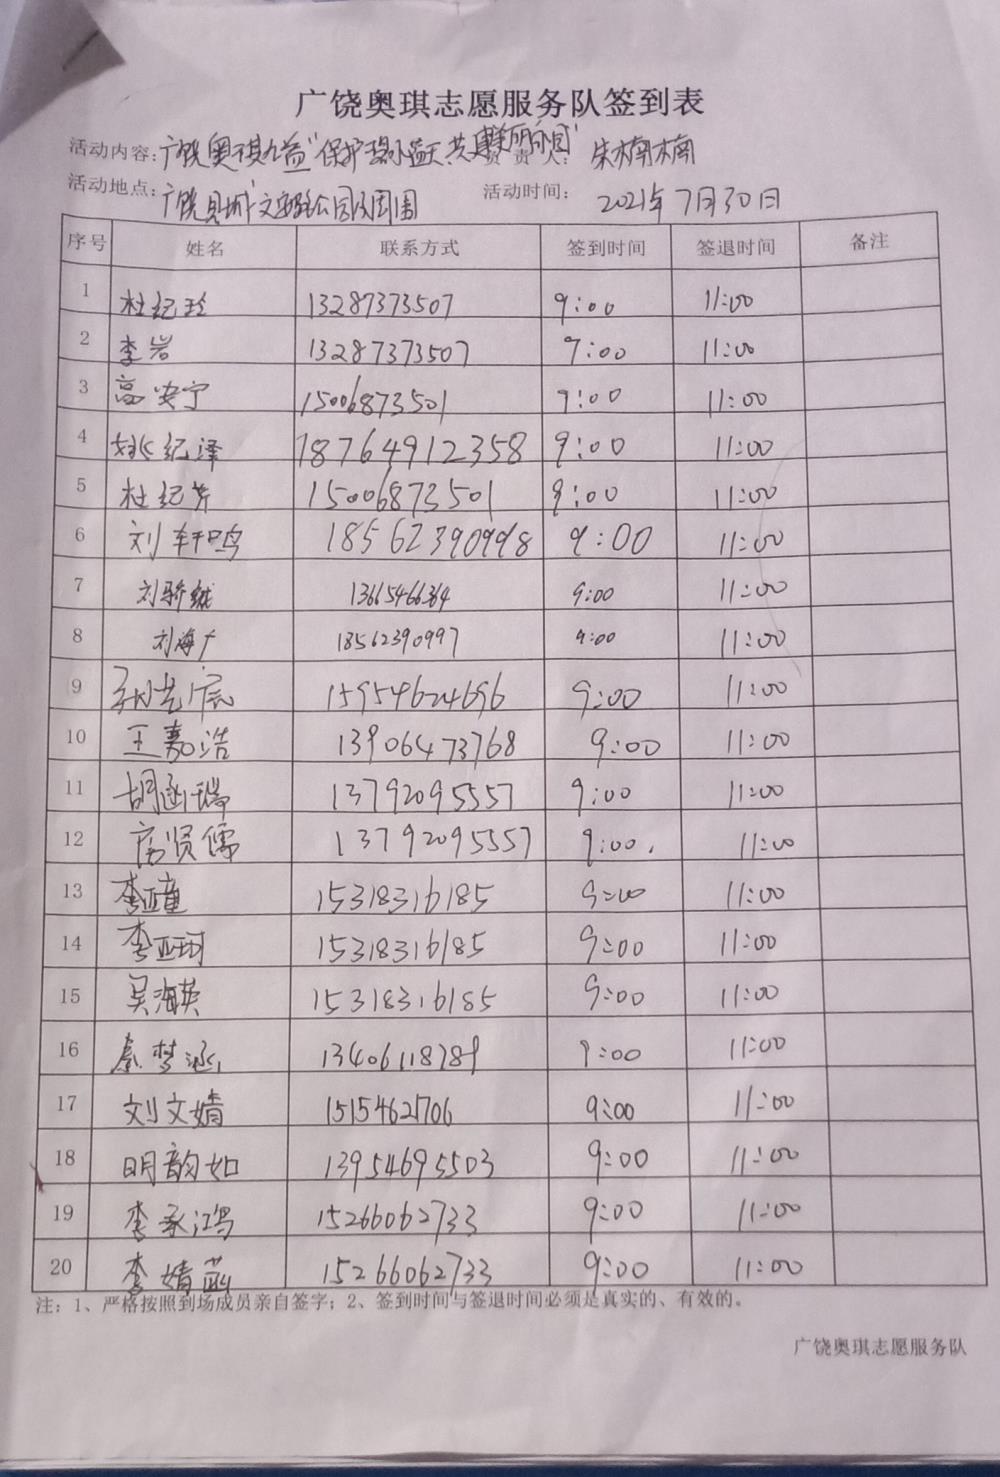 广饶奥琪志愿服务队签到表
活动内容:广饶奥琪公益"保护碧水蓝天共建美丽家园" 负责人: 朱楠楠
活动地点:广饶县城文安路公园及周围 活动时间: 2021年7月30日
序号 姓名 联系方式 签到时间 签退时间 备注
1 杜纪玲 13287373507 9:00 11:00
2 李岩 13287373507 9:00 11:00
3 高安宁 15006873501 9:00 11:00
4 姚纪泽 18764912358 9:00 11:00
5 杜纪芳 15006873501 9:00 11:00
6 刘轩鸣 18562390998 9:00 11:00
7 刘骄绒 13665466364 9:00 11:00
8 刘海广 18562390997 9:00 11:00
9 孙艺宸 15954624696 9:00 11:00
10 王嘉浩 13906473768 9:00 11:00
11 胡涵瑞 13792095557 9:00 11:00
12 房贤儒 13792095557 9:00. 11:00
13 李亚童 15318316185 9:00 11:00
14 李亚珂 15318316185 9:00 11:00
15 吴海英 15318316185 9:00 11:00
16 秦梦涵 13406118789 9:00 11:00
17 刘文婧 15154621706 9:00 11:00
18 明韵如 13954695503 9:00 11:00
19 李承鸿 15266062733 9:00 11:00
20 李婧菡 15266062733 9:00 11:00
注:1、严格按照到场成员亲自签字;2、签到时间与签退时间必须是真实的、有效的。
广饶奥琪志愿服务队